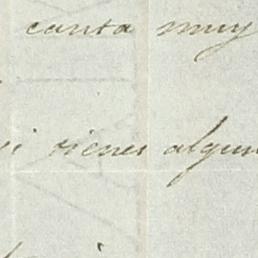 canta muy
si vienes algun